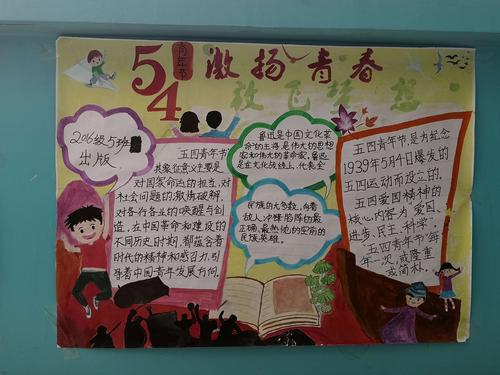 54
青年节
激扬青春
放飞梦想
2016级5班
出版
五四青年节
其象征意义主要是
对国家命运的担当,对
社会问题的激情破解,
对各行各业的唤醒与创
造,在中国革命和建设的
不同历史时刻,都蕴含着
时代的精神和感召力,引
导着中国青年发展方向.
鲁迅是中国文化革
命的主将,是伟大的思想
家和伟大的革命家,鲁迅
是在文化战线上,代表全
民族的大多数,向着
敌人冲锋陷阵的最
正确,最热忱的空前的
民族英雄。
五四青年节,是为纪念
1939年5月4日爆发的
五四运动而设立的,
五四爱国精神的
核心内容为"爱国、
进步、民主、科学".
五四青年节"每
年一次,或隆重
或简朴.